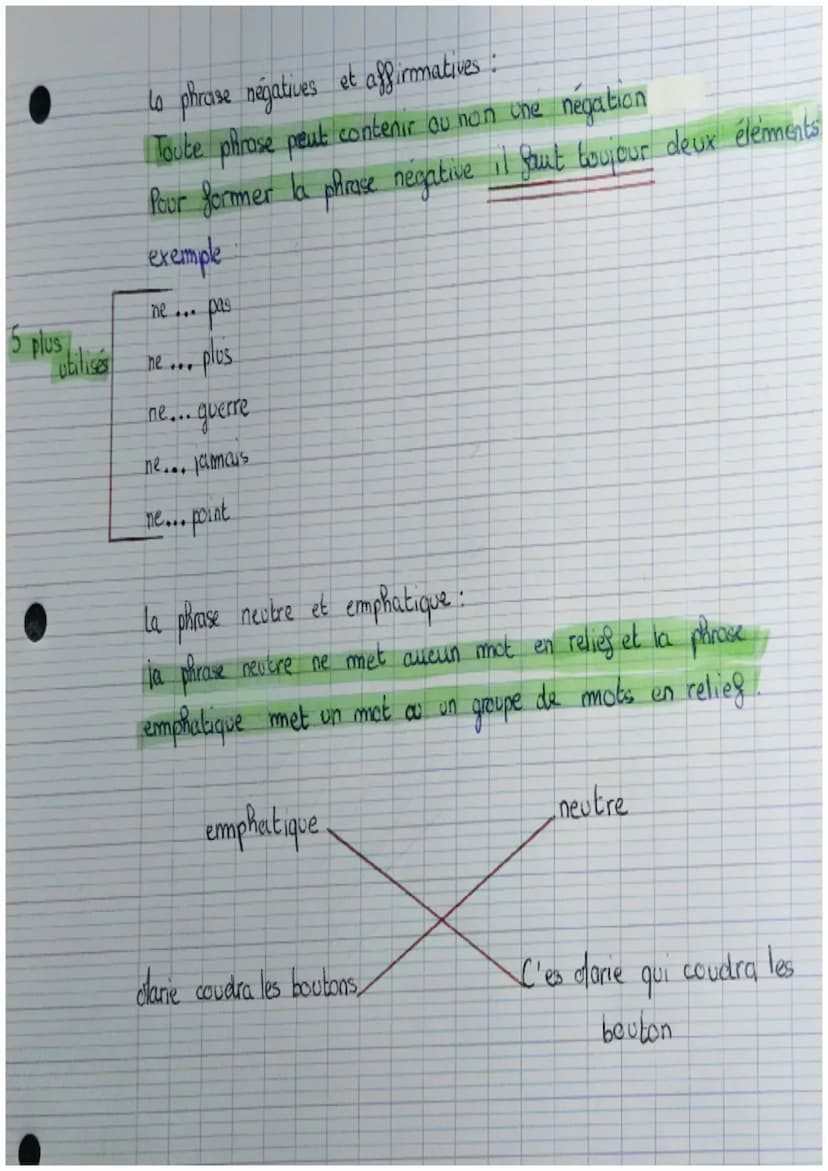 La phrase négatives et affirmatives :
Toute phrase peut contenir ou non une négation
Pour former la phrase négative il faut toujour deux éléments
exemple
5 plus utilisés
ne ... pas
ne ... plus
ne... guerre
ne... jamais
ne... point
La phrase neutre et emphatique :
la phrase neutre ne met aucun mot en relief et la phrase
emphatique met un mot ou un groupe de mots en relief.
emphatique
neutre
Marie coudra les boutons
C'es Marie qui coudra les
bouton